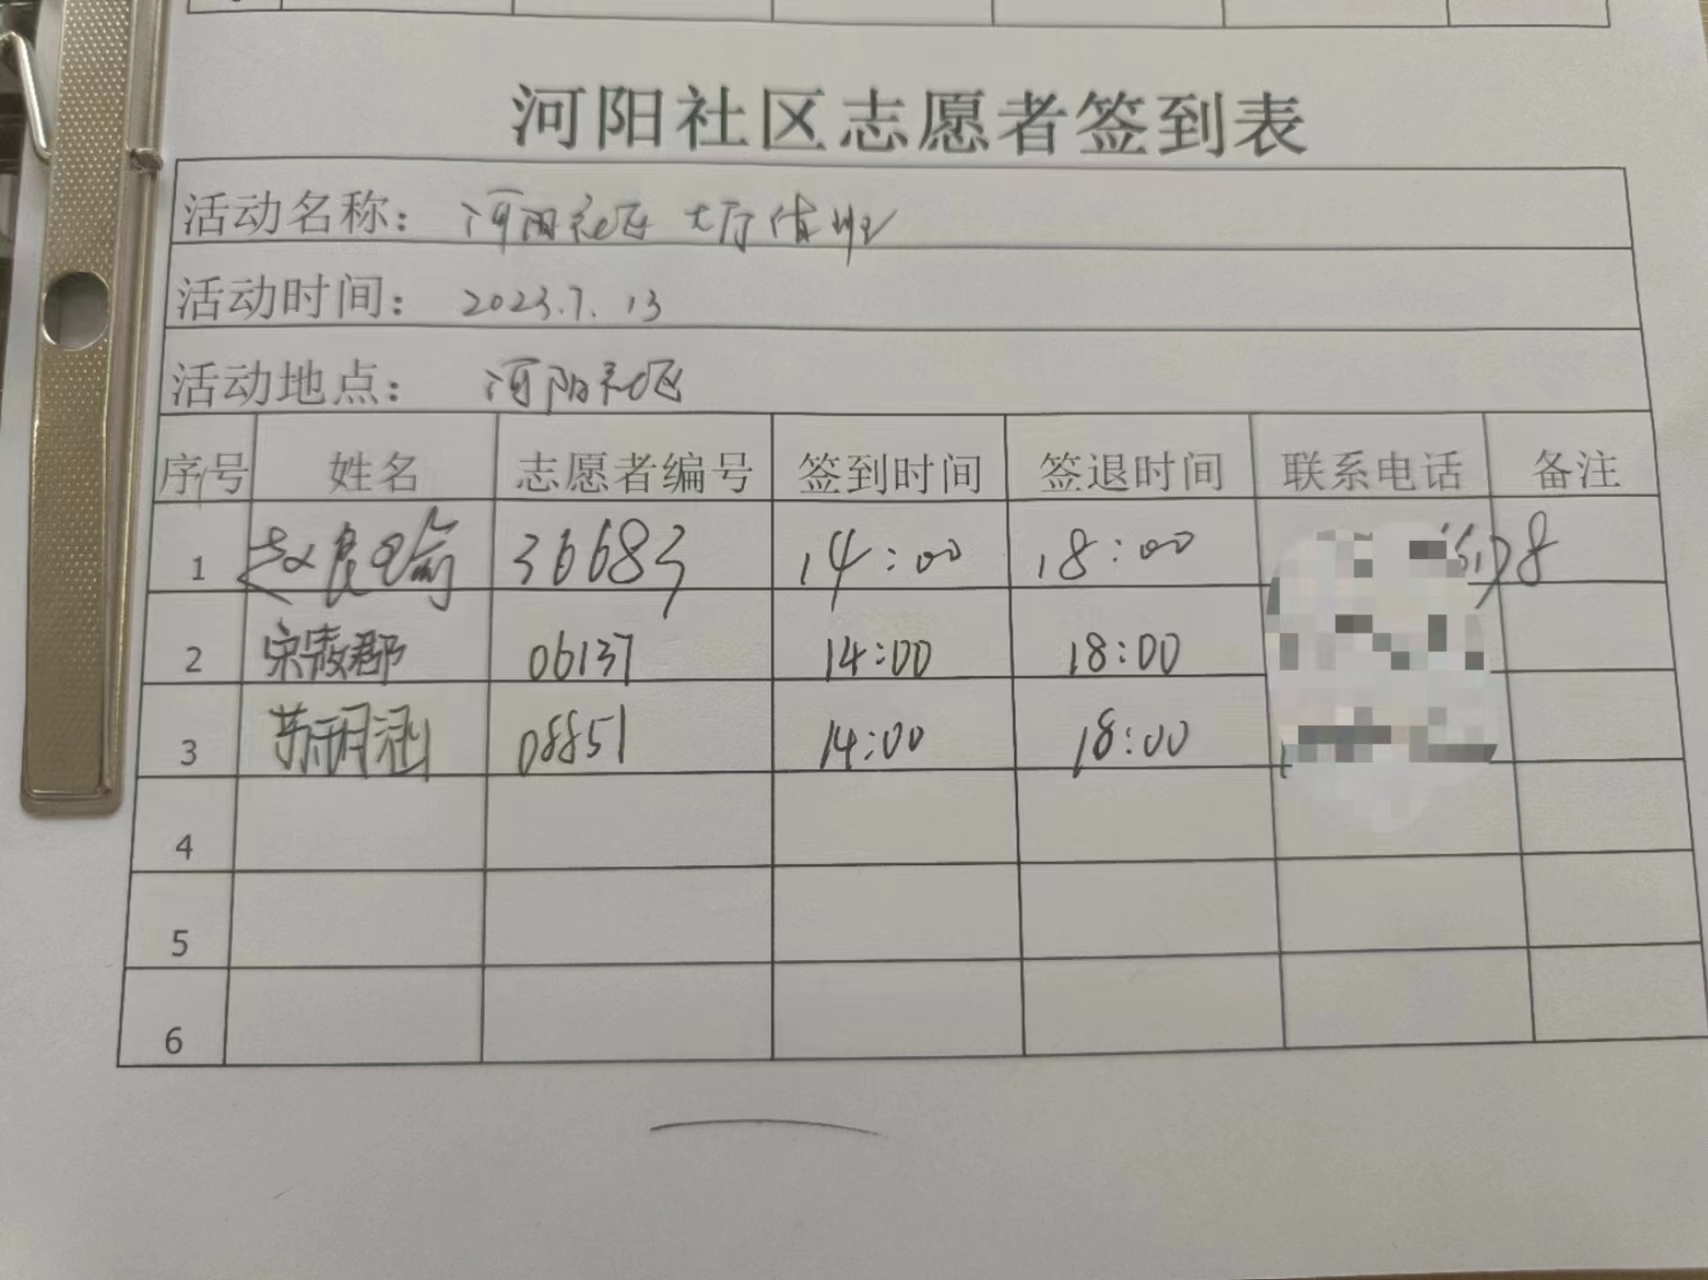 河阳社区志愿者签到表
活动名称： 河阳社区大厅值班
活动时间： 2023.7.13
活动地点： 河阳社区
序号 姓名 志愿者编号 签到时间 签退时间 联系电话 备注
1 赵 36683 14:00 18:00
2 宋 郡 06137 14:00 18:00
3 涵 08851 14:00 18:00
4
5
6